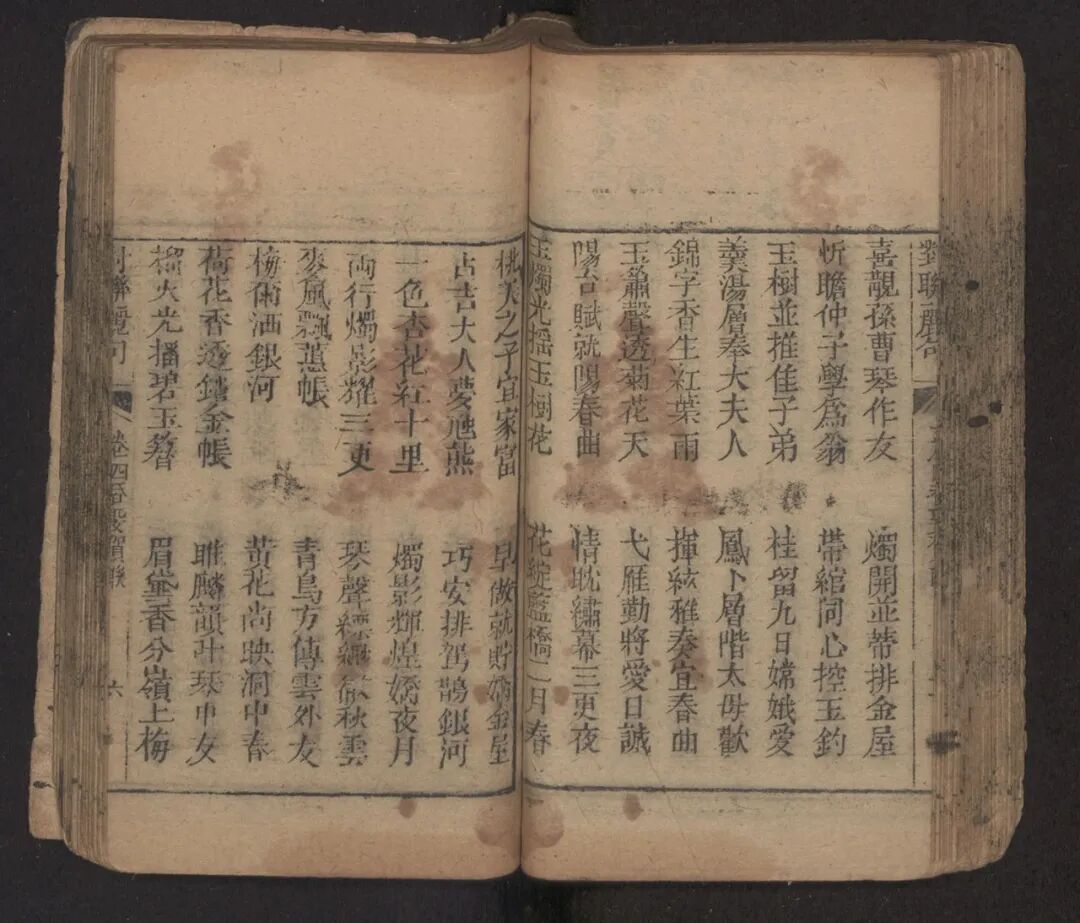 對聯麗句
喜覯孫曹琴作友
燭開並蒂排金屋
忻瞻仲子學爲翁
帶綰同心控玉鈎
玉樹並推佳子弟
桂留九日嫦娥愛
羮湯層奉大夫人
鳳卜層階太母歡
錦字香生紅葉雨
揮絃雅奏宜春曲
玉簫聲透菊花天
弋雁勤將愛日誠
陽台賦就陽春曲
情耽繡幕三更夜
玉燭光搖玉樹花
花綻藍橋二月春
桃夭之子宜家富
早做就貯嬌金屋
占吉大人夢虺熊
巧安排駕鵲銀河
一色杏花紅十里
燭影輝煌嬌夜月
兩行燭影耀三更
琴聲縹緲歛秋雲
麥風飄蕙帳
青鳥方傳雲外友
梅雨洒銀河
黃花尚映洞中春
荷花香透銷金帳
睢麟韻叶琴中友
榴火光搖碧玉簪
眉黛香分嶺上梅
對聯麗句
卷四 婚娶賀聯
六